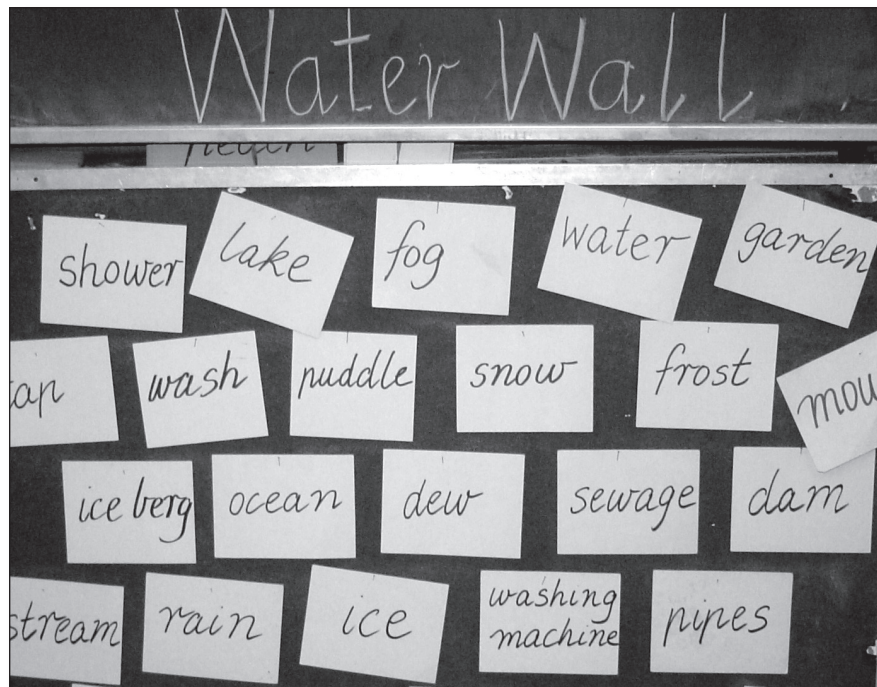 Water Wall
shower
lake
fog
water
garden
ap
wash
puddle
snow
frost
mou
ice berg
ocean
dew
sewage
dam
stream
rain
ice
washing
machine
pipes